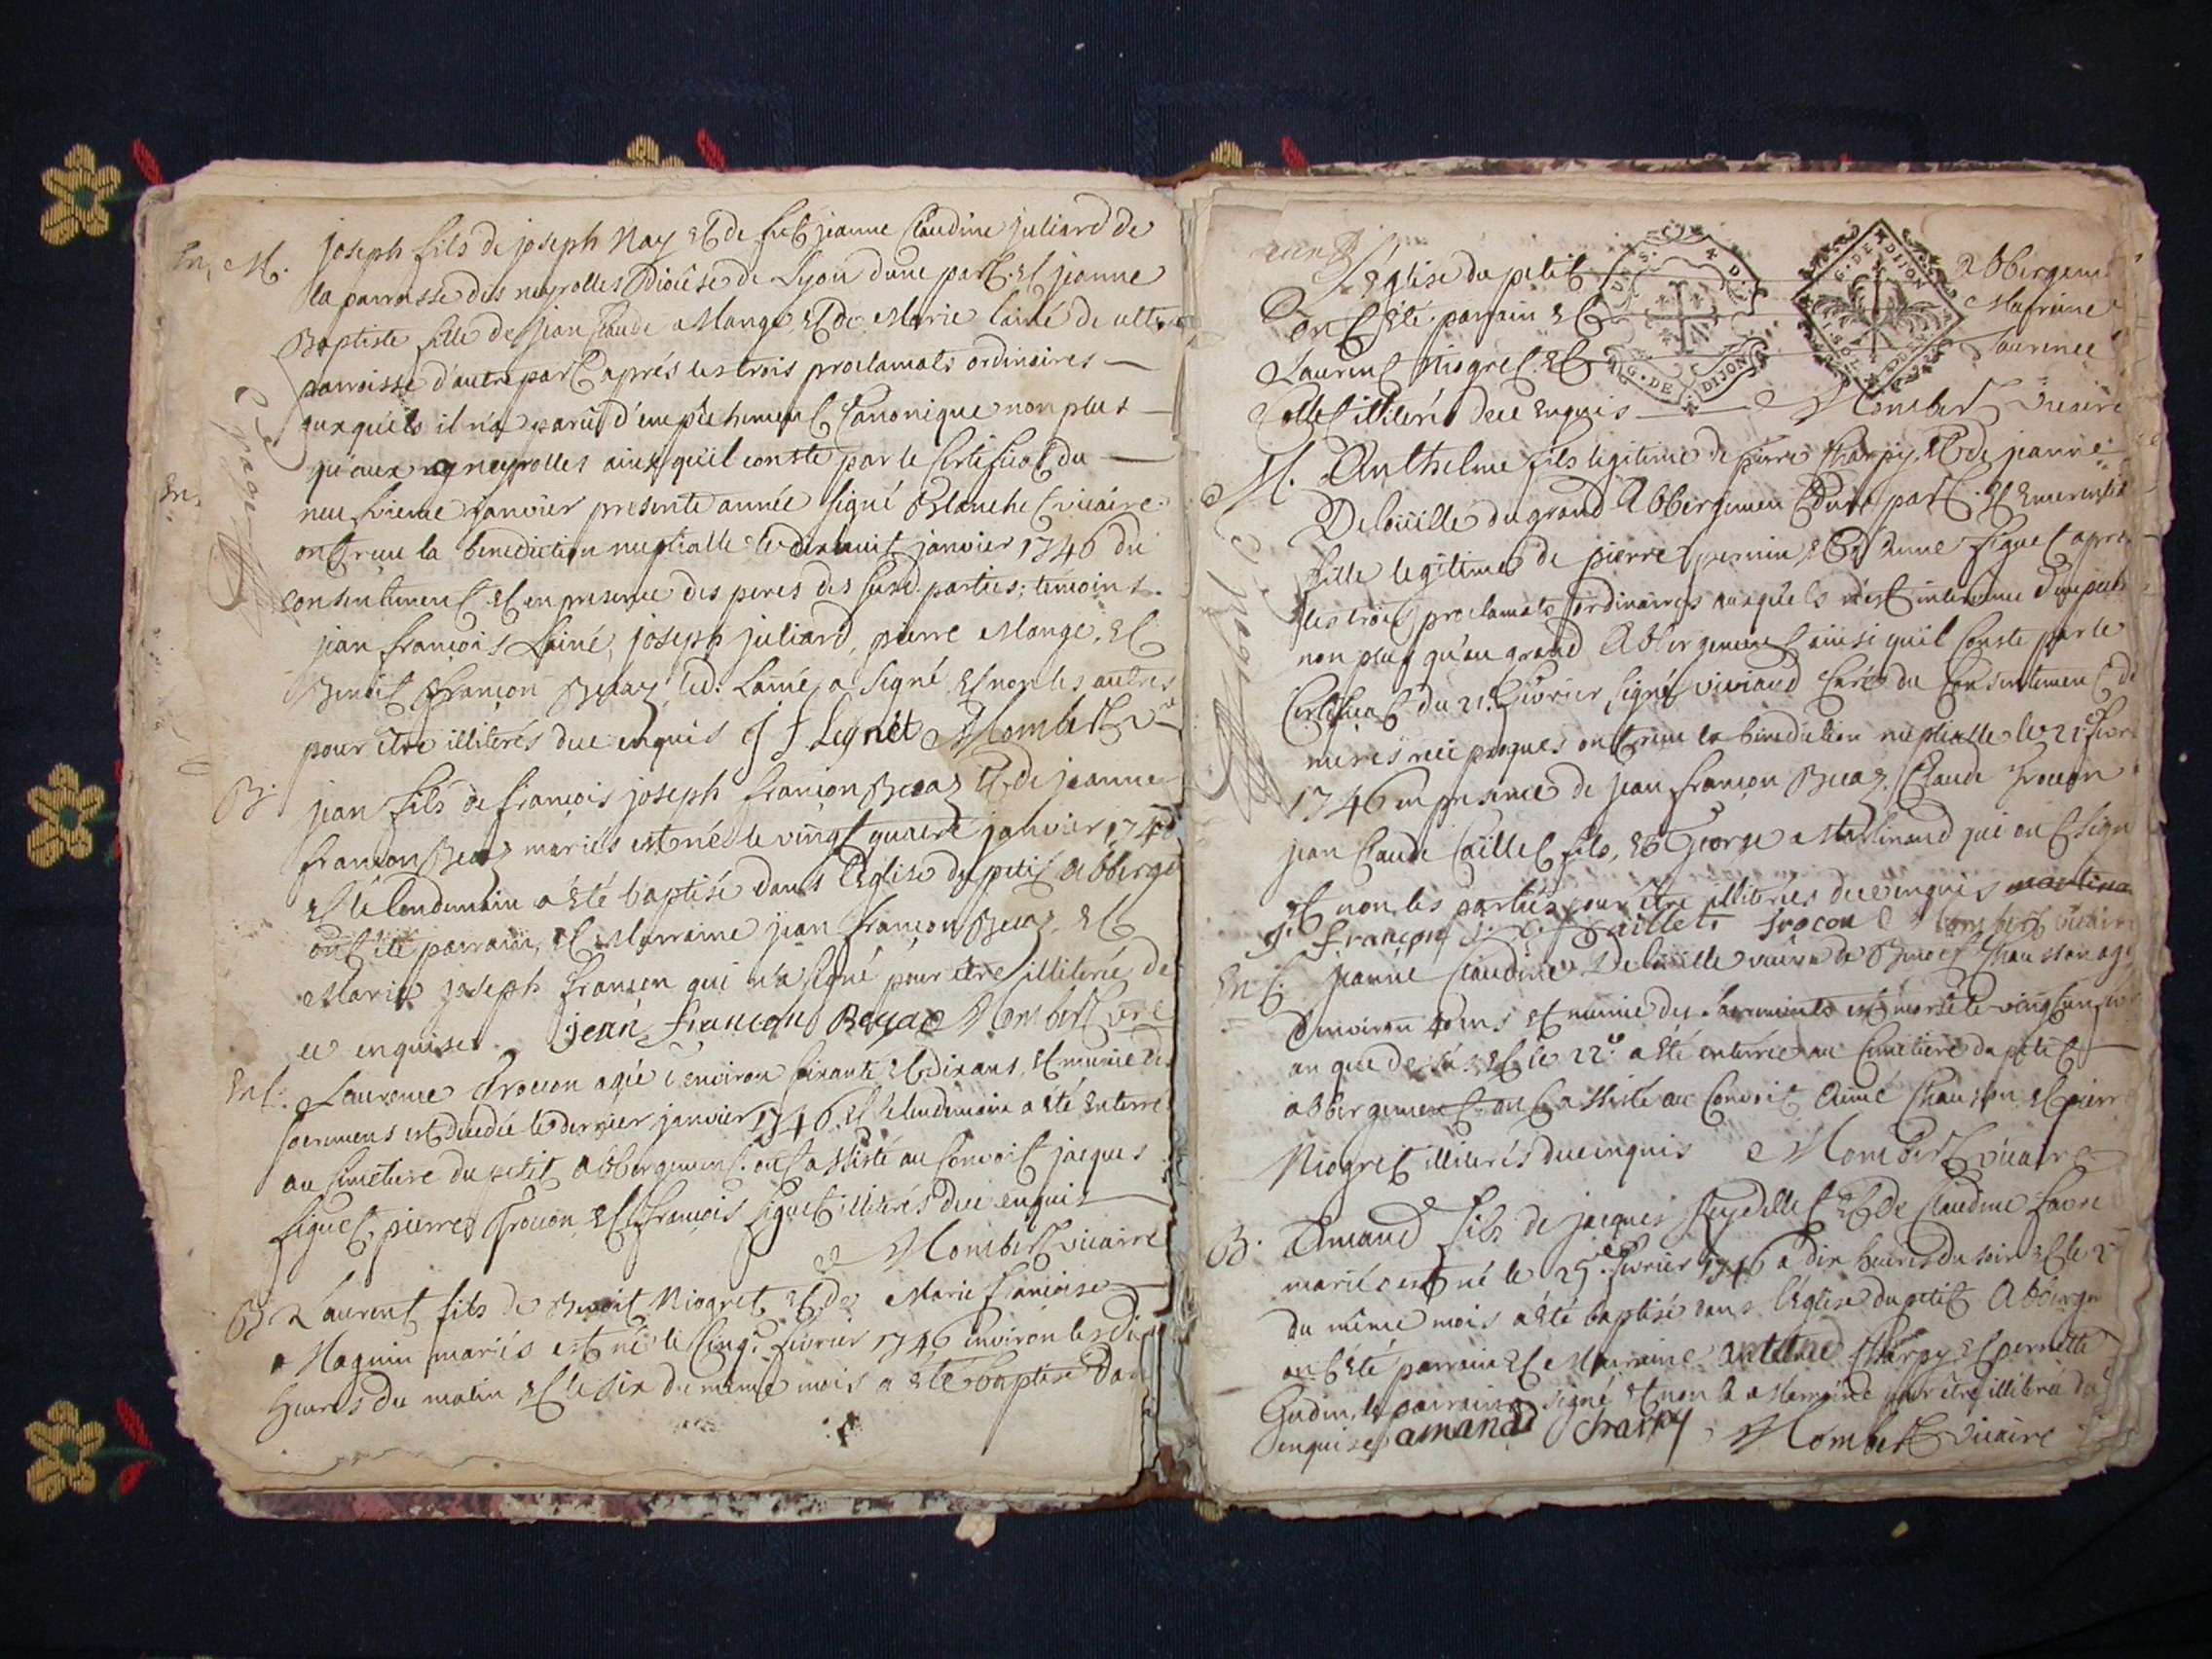 M. joseph fils de joseph Nay et de feüe jeanne Claudine juliard de
la parroisse des neyrolles Diocése de Lyon dune part et jeanne
Baptiste fille de jean Claude Mange et de Marie Lainé de cette
parroisse d'autre part aprés les trois proclamats ordinaires
auxquéls il n'a parû d'empéchement Canonique non plus
qu'aux neyrolles ainsy qu'il conste par le Certificat du
neufvieme janvier presente année signé Blanchet vicaire
ont reçu la benediction nuptialle le dixhuit janvier 1746 du
consentement et en presence des peres des susd. parties; temoins
jean françois Lainé, joseph juliard, pierre Mange, et
Benoit françon Beaz led. Lainé a signé et non les autres
pour être illiterés de ce enquis J f Leynét Mombert vre
B. jean fils de françois joseph françon Beaz et de jeanne
françon Beaz mariés est né le vingt quatre janvier 1746
et le lendemain a été baptisé dans l'Eglise du petit abberge
ont été parrain et Marraine jean françon Beaz, et
Marie joseph françon qui n'a signé pour être illiterée de
ce enquise. jean françon Beyaz Mombert vre
Ent. Laurence Trocon agée d'environ soixante et dix ans et munie des
sacremens est decedée le dernier janvier 1746 et le lendemain a été enterré
au Cimetiere du petit abbergement. ont assisté au Convoit jacques
figuet, pierre Trocon et françois figuet illiterés de ce enquis
Mombert vicaire
B. Laurent fils de Benoit Niogret et de Marie françoise
Maguin mariés est né le Cinq.e fevrier 1746 environ les dix
heures du matin et le six du même mois a été baptisé dans
l'Eglise du petit Abbergem
ont été parrain et Marraine
Laurent Niogret et Laurence
Collet illiterés de ce enquis Mombert vicaire
G. DE DIJON
G. DE DIJON
M. Anthelme fils legitime de pierre Charpy et de jeanne
Deloüille du grand Abbergement d'une part et Emerentia
fille legitime de pierre pernin et d'Anne figuet aprés
les trois proclamats ordinaires auxquels n'est intervenu d'empech
non plus qu'au grand Abbergement ainsi qu'il Conste par le
Certificat du 21. fevrier, signé viviand Curé du Consentement de
meres reciproques ont reçu la benediction nuptialle le 21 fevr
1746 en presence de jean françon Beaz, Claude Trocon
jean Claude Caillet fils, et George Martinand qui ont signé
et non les parties pour être illiterées de ce enquis martina
J. françon J. C. Caillet trocon Mombert vicaire
Ent. jeanne Claudine Deloüille veüve de Benoit Chausson agé
d'environ 40 ans et munie des Sacrements est morte le vingt un fev
an que dessus et le 22.e a été enterrée au Cimetiere du petit
abbergement ont assisté au Convoit Aimé Chausson et pierre
Niogret illiterés de ce enquis Mombert vicaire
B. Amand fils de jacques Reydellet et de Claudine favre
mariés est né le 25.e fevrier 1746 a dix heures du soir et le 2
du même mois a été baptisé dans l'Eglise du petit Abberge
ont été parrain et Marraine Charpy et pernette
Gudin, le parrain a signé et non la Marraine pour être illiterée de ce
enquise amand Charpy Mombert vicaire